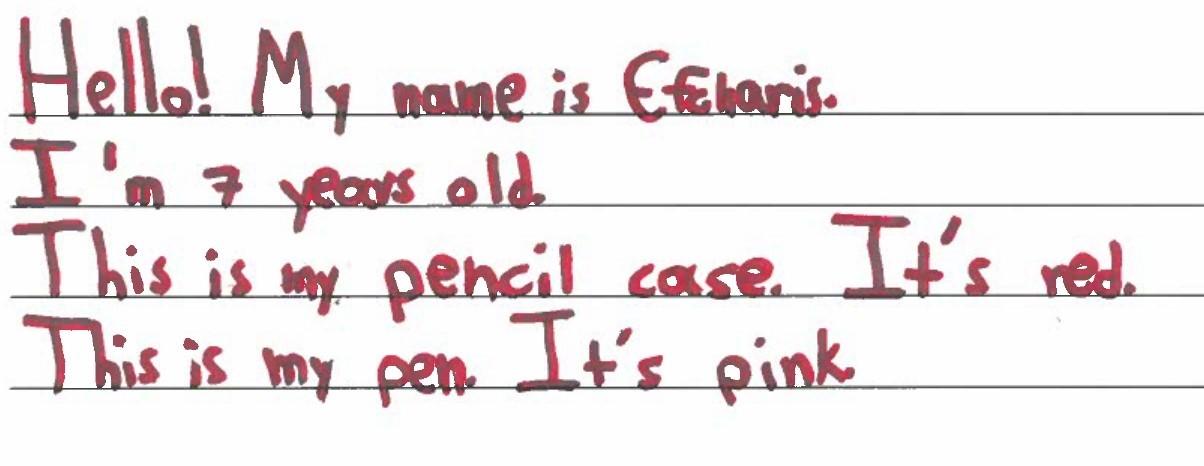 Hello! My name is Efcharis.
I'm 7 years old.
This is my pencil case. It's red.
This is my pen. It's pink.